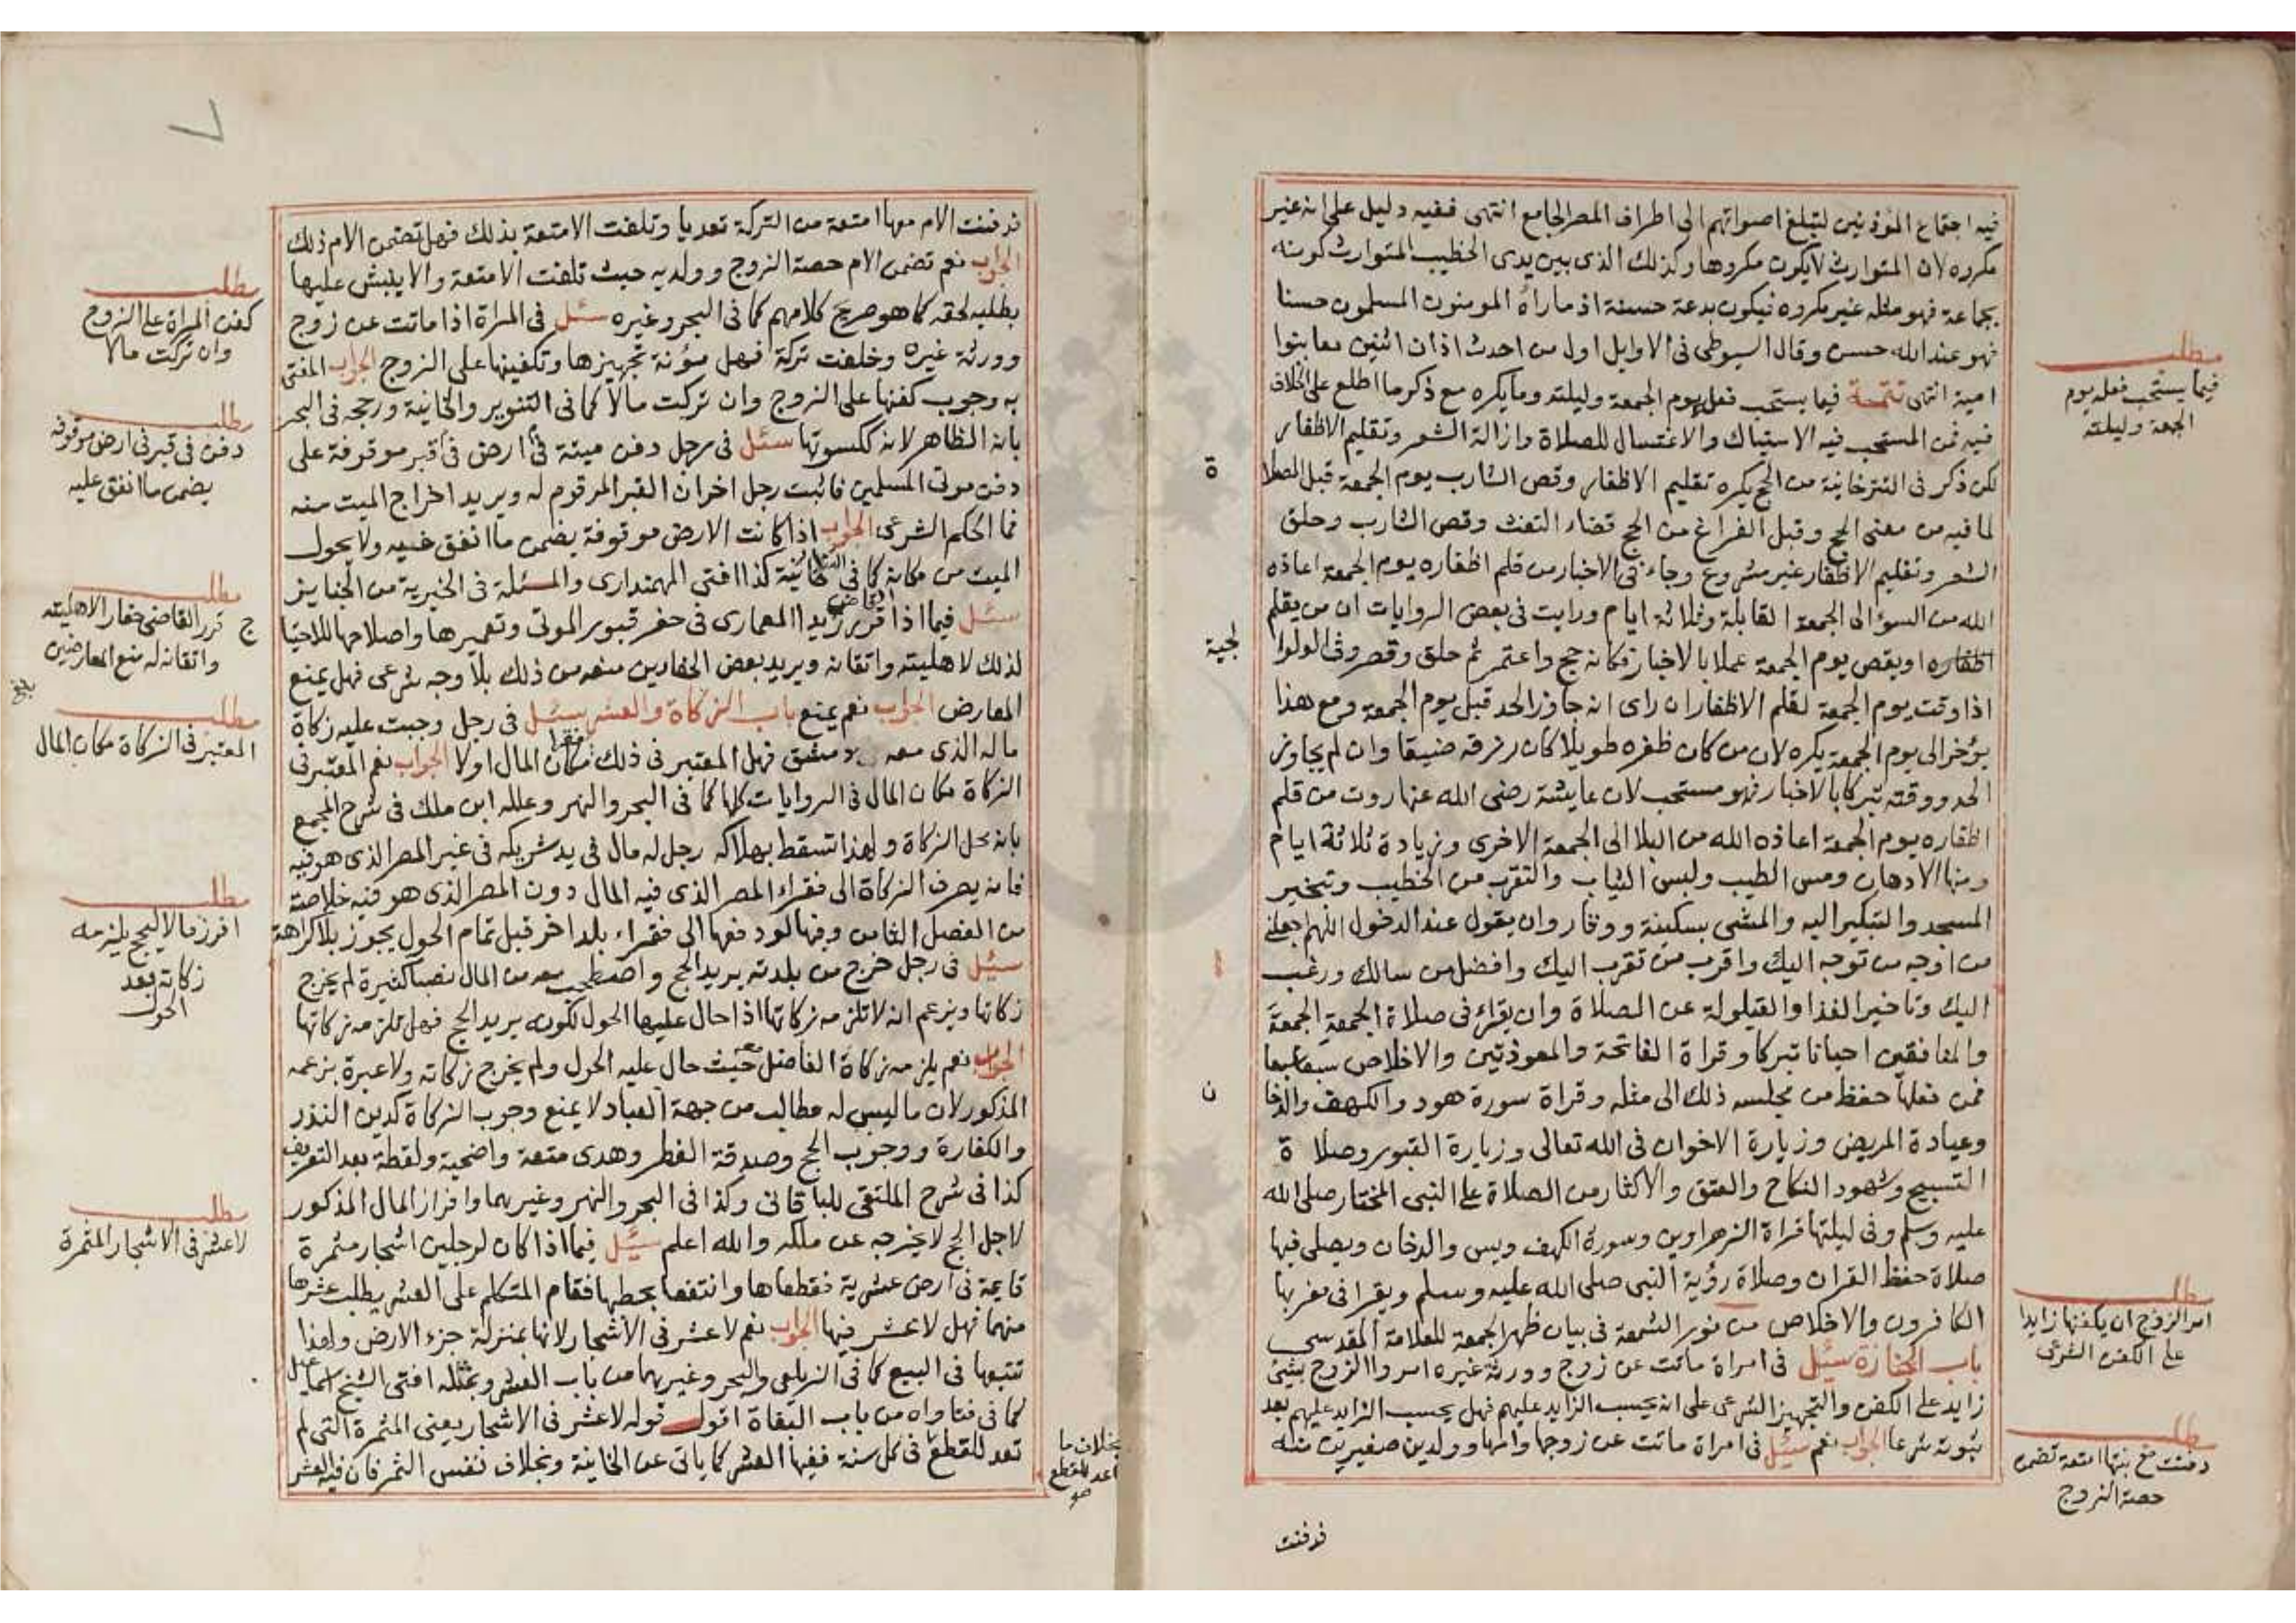 فيه اجتماع المؤذنين لتبلغ اصواتهم الى اطراف المصر الجامع انتهى ففيه دليل على انه غير
مكروه لان المتوارث لا يكون مكروها وكذلك الذى بين يدى الخطيب المتوارث كونه
بجماعة فهو مثله غير مكروه فيكون بدعة حسنة اذ ما راه المومنون المسلمون حسنا
فهو عند الله حسن وقال السيوطى فى الاوايل اول من احدث اذان اثنين معا بنوا
امية انتهى تتمة فيما يستحب فعله يوم الجمعة وليلته وما يكره مع ذكر ما اطلع على الخلاف
فيه فمن المستحب فيه الاستياك والاغتسال للصلاة وازالة الشعر وتقليم الاظفار
لكن ذكر فى التترخانية من الحج يكره تقليم الاظفار وقص الشارب يوم الجمعة قبل الصلا
ة
لما فيه من معنى الحج وقبل الفراغ من الحج قضاء التفث وقص الشارب وحلق
الشعر وتقليم الاظفار غير مشروع وجاء فى الاخبار من قلم اظفاره يوم الجمعة اعاذه
الله من السؤ الى الجمعة القابلة وثلاثة ايام ورايت فى بعض الروايات ان من يقلم
اظفاره او يقص يوم الجمعة عملا بالاخبار فكانه حج واعتمر ثم حلق وقصر وفى الولوا
لجية
اذا وقت يوم الجمعة لقلم الاظفار ان راى انه جاوز الحد قبل يوم الجمعة ومع هذا
يؤخر الى يوم الجمعة يكره لان من كان ظفره طويلا كان رزقه ضيقا وان لم يجاوز
الحد ووقته تبركا بالاخبار فهو مستحب لان عايشة رضى الله عنها روت من قلم
اظفاره يوم الجمعة اعاذه الله من البلا الى الجمعة الاخرى وزيادة ثلاثة ايام
ومنها الادهان ومس الطيب ولبس الثياب والتقرب من الخطيب وتبخير
المسجد والتبكير اليه والمشى بسكينة ووقار وان يقول عند الدخول اللهم اجعلنى
من اوجه من توجه اليك واقرب من تقرب اليك وافضل من سالك ورغب
اليك وتاخير الغذا والقيلولة عن الصلاة وان يقراء فى صلاة الجمعة الجمعة
والمنافقين احيانا تبركا وقراة الفاتحة والمعوذتين والاخلاص سبعا سبعا
فمن فعلها حفظ من مجلسه ذلك الى مثله وقراة سورة هود والكهف والدخا
ن
وعيادة المريض وزيارة الاخوان فى الله تعالى وزيارة القبور وصلاة
التسبيح وشهود النكاح والعتق والاكثار من الصلاة على النبى المختار صلى الله
عليه وسلم وفى ليلتها قراة الزهراوين وسورة الكهف ويس والدخان ويصلى فيها
صلاة حفظ القران وصلاة رؤية النبى صلى الله عليه وسلم ويقرا فى مغربها
الكافرون والاخلاص من نور الشمعة فى بيان ظهر الجمعة للعلامة المقدسى
باب الجنازة سئل فى امراة ماتت عن زوج وورثة غيره امروا الزوج بشئ
زايد على الكفن والتجهيز الشرعى على انه يحسب الزايد عليهم فهل يحسب الزايد عليهم بعد
ثبوته شرعا الجواب نعم سئل فى امراة ماتت عن زوجها وامها وولدين صغيرين منه
فدفنت
مطلب
فيما يستحب فعله يوم
الجمعة وليلته
مطلب
امر الزوج ان يكفنها زايدا
على الكفن الشرعى
مطلب
دفنت مع بنتها امتعة تضمن
حصة الزوج
فدفنت الام معها امتعة من التركة تعديا وتلفت الامتعة بذلك فهل تضمن الام ذلك
الجواب نعم تضمن الام حصة الزوج وولديه حيث تلفت الامتعة والا ينبش عليها
بطلبه لحقه كما هو صريح كلامهم كما فى البحر وغيره سئل فى المراة اذا ماتت عن زوج
وورثة غيره وخلفت تركة فهل مؤنة تجهيزها وتكفينها على الزوج الجواب المفتى
به وجوب كفنها على الزوج وان تركت مالا كما فى التنوير والخانية ورجحه فى البحر
بانه الظاهر لانه ككسوتها سئل فى رجل دفن ميته فى ارض فى قبر موقوفة على
دفن موتى المسلمين فاثبت رجل اخر ان القبر المرقوم له ويريد اخراج الميت منه
فما الحكم الشرعى الجواب اذا كانت الارض موقوفة يضمن ما انفق فيه ولا يحول
الميت من مكانه كما فى التتارخانية كذا افتى المهمندارى والمسئلة فى الخيرية من الجنايز
سئل فيما اذا قرر القاضى زيدا المعمارى فى حفر قبور الموتى وتعميرها واصلاحها للاحتيا
لذلك لاهليته واتقانه ويريد بعض الحفارين منعه من ذلك بلا وجه شرعى فهل يمنع
المعارض الجواب نعم يمنع باب الزكاة والعشر سئل فى رجل وجبت عليه زكاة
ماله الذى معه بدمشق فهل المعتبر فى ذلك فقرا مكان المال اولا الجواب نعم المعتبر فى
الزكاة مكان المال فى الروايات كلها كما فى البحر والنهر وعلله ابن ملك فى شرح المجمع
بانه محل الزكاة ولهذا تسقط بهلاكه رجل له مال فى يد شريكه فى غير المصر الذى هو فيه
فانه يصرف الزكاة الى فقراء المصر الذى فيه المال دون المصر الذى هو فيه خلاصة
من الفصل الثامن وفيها لو دفعها الى فقراء بلد اخر قبل تمام الحول يجوز بلا كراهة
سئل فى رجل خرج من بلدته يريد الحج واصطحب معه من المال نصبا كثيرة لم يخرج
زكاتها ويزعم انه لا تلزمه زكاتها اذا حال عليها الحول لكونه يريد الحج فهل تلزمه زكاتها
الجواب نعم يلزمه زكاة الفاضل معه حيث حال عليه الحول ولم يخرج زكاته ولا عبرة بزعمه
المذكور لان ما ليس له مطالب من جهة العباد لا يمنع وجوب الزكاة كدين النذر
والكفارة ووجوب الحج وصدقة الفطر وهدى متعة واضحية ولقطة بعد التعريف
كذا فى شرح الملتقى للباقانى وكذا فى البحر والنهر وغيرهما وافراز المال المذكور
لاجل الحج لا يخرجه عن ملكه والله اعلم سئل فيما اذا كان لرجلين اشجار مثمرة
قايمة فى ارض عشرية فقطعاها وانتفعا بحطبها فقام المتكلم على العشر يطلب عشرها
منهما فهل لا عشر فيها الجواب نعم لا عشر فى الاشجار لانها بمنزلة جزء الارض ولهذا
تتبعها فى البيع كما فى الزيلعى والبحر وغيرهما من باب العشر وبمثله افتى الشيخ اسماعيل
كما فى فتاواه من باب النفقاة اقول قوله لا عشر فى الاشجار يعنى المثمرة التى لم
تعد للقطع فى كل سنة ففيها العشر كما ياتى عن الخانية وبخلاف نفس الثمر فان فيه العشر
بخلاف ما
اعد للقطع
صو
مطلب
كفن المراة على الزوج
وان تركت مالا
مطلب
دفن فى قبر فى ارض موقوفه
يضمن ما انفق عليه
مطلب
ج قرر القاضى حفار الاهليته
واتقانه له منع المعارضين
مطلب
المعتبر فى الزكاة مكان المال
مطلب
افرز مالا ليحج يلزمه
زكاته بعد
الحول
مطلب
لا عشر فى الاشجار المثمرة